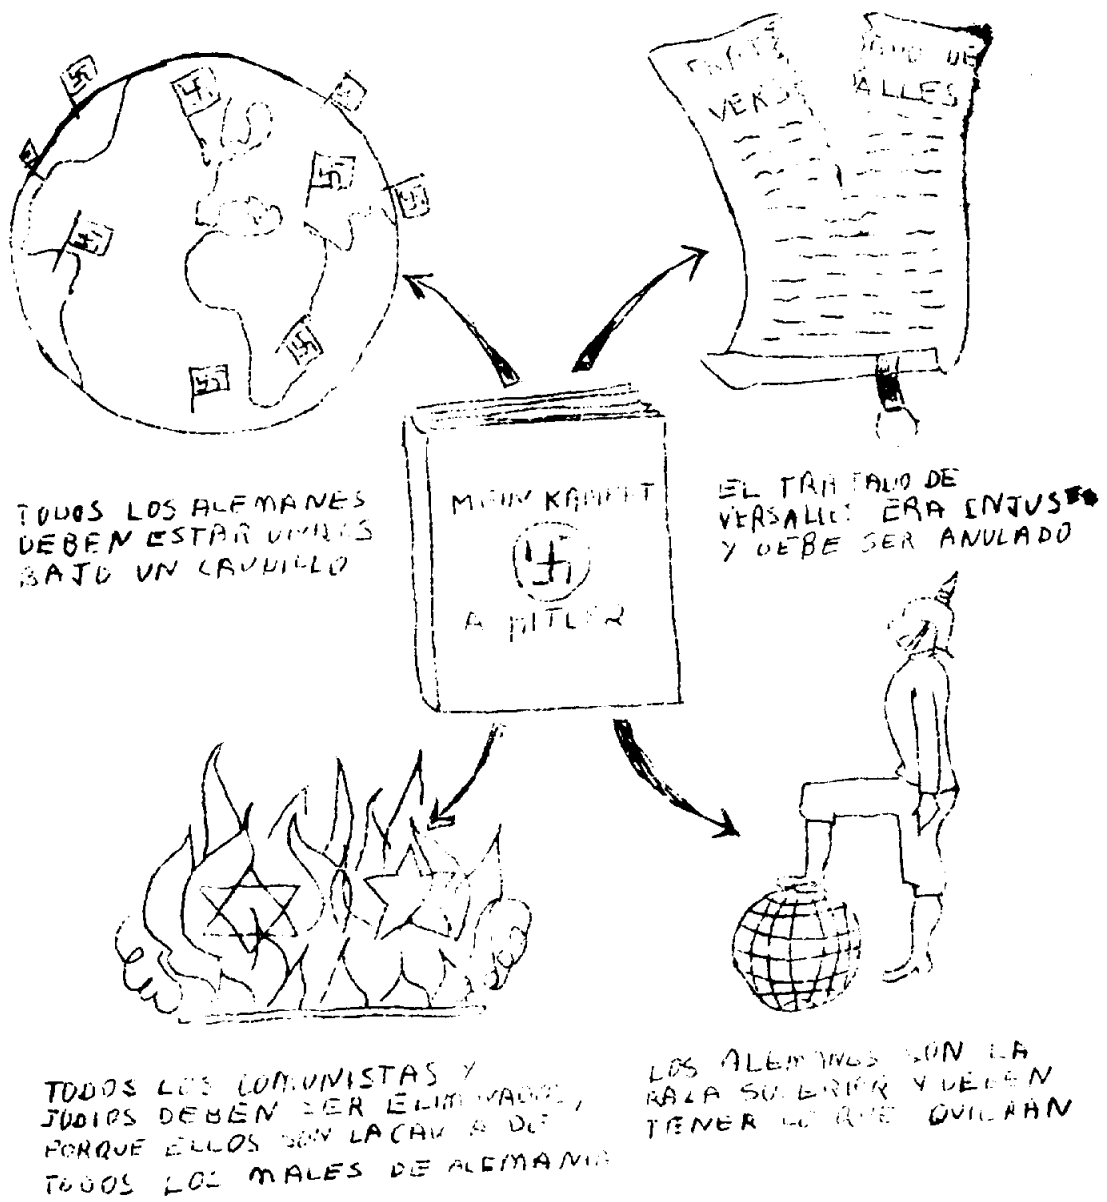 TRATADO DE
VERSALLES
TODOS LOS ALEMANES
DEBEN ESTAR UNIDOS
BAJO UN CAUDILLO
MEIN KAMPF
A HITLER
EL TRATADO DE
VERSALLES ERA INJUSTO
Y DEBE SER ANULADO
TODOS LOS COMUNISTAS Y
JUDIOS DEBEN SER ELIMINADOS,
PORQUE ELLOS SON LA CAUSA DE
TODOS LOS MALES DE ALEMANIA
LOS ALEMANES SON LA
RAZA SUPERIOR Y DEBEN
TENER LO QUE QUIERAN